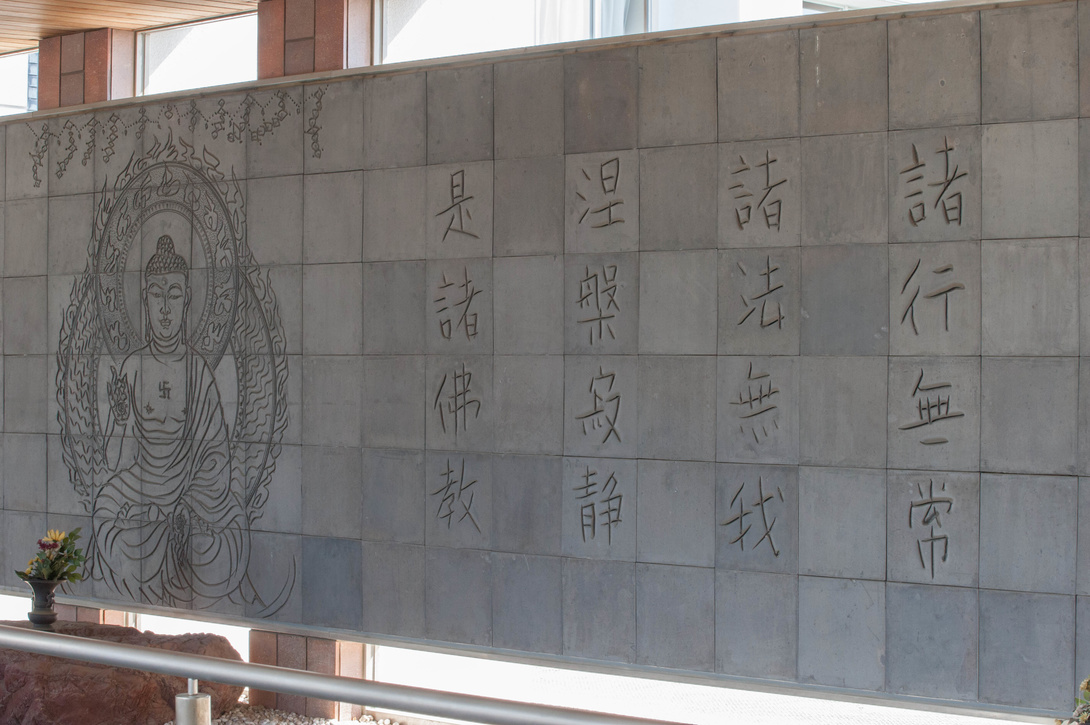 諸行無常
諸法無我
涅槃寂静
是諸佛教